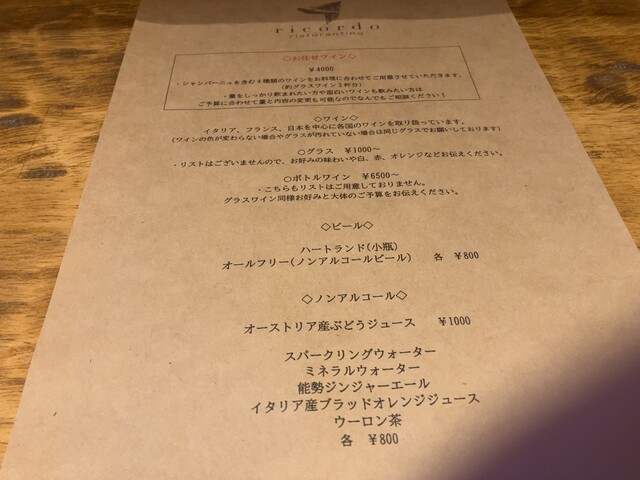 ricordo
ristorantino
◇お任せワイン◇
￥4000
・シャンパーニュを含む4種類のワインをお料理に合わせてご用意させていただきます。
・量をしっかり飲まれたい方や面白いワインも飲みたい方は
ご予算に合わせて量と内容の変更も可能なのでなんでもご相談ください！
◇ワイン◇
イタリア、フランス、日本を中心に各国のワインを取り扱っています。
(ワインの色が変わらない場合やグラスが汚れていない場合は同じグラスでお願いしております)
○グラス　￥1000～
・リストはございませんので、お好みの味わいや白、赤、オレンジなどお伝えください。
○ボトルワイン　￥6500～
・こちらもリストはご用意しておりません。
グラスワイン同様お好みと大体のご予算をお伝えください。
◇ビール◇
ハートランド(小瓶)
オールフリー(ノンアルコールビール)　各　￥800
◇ノンアルコール◇
オーストリア産ぶどうジュース　￥1000
スパークリングウォーター
ミネラルウォーター
能勢ジンジャーエール
イタリア産ブラッドオレンジジュース
ウーロン茶
各　￥800